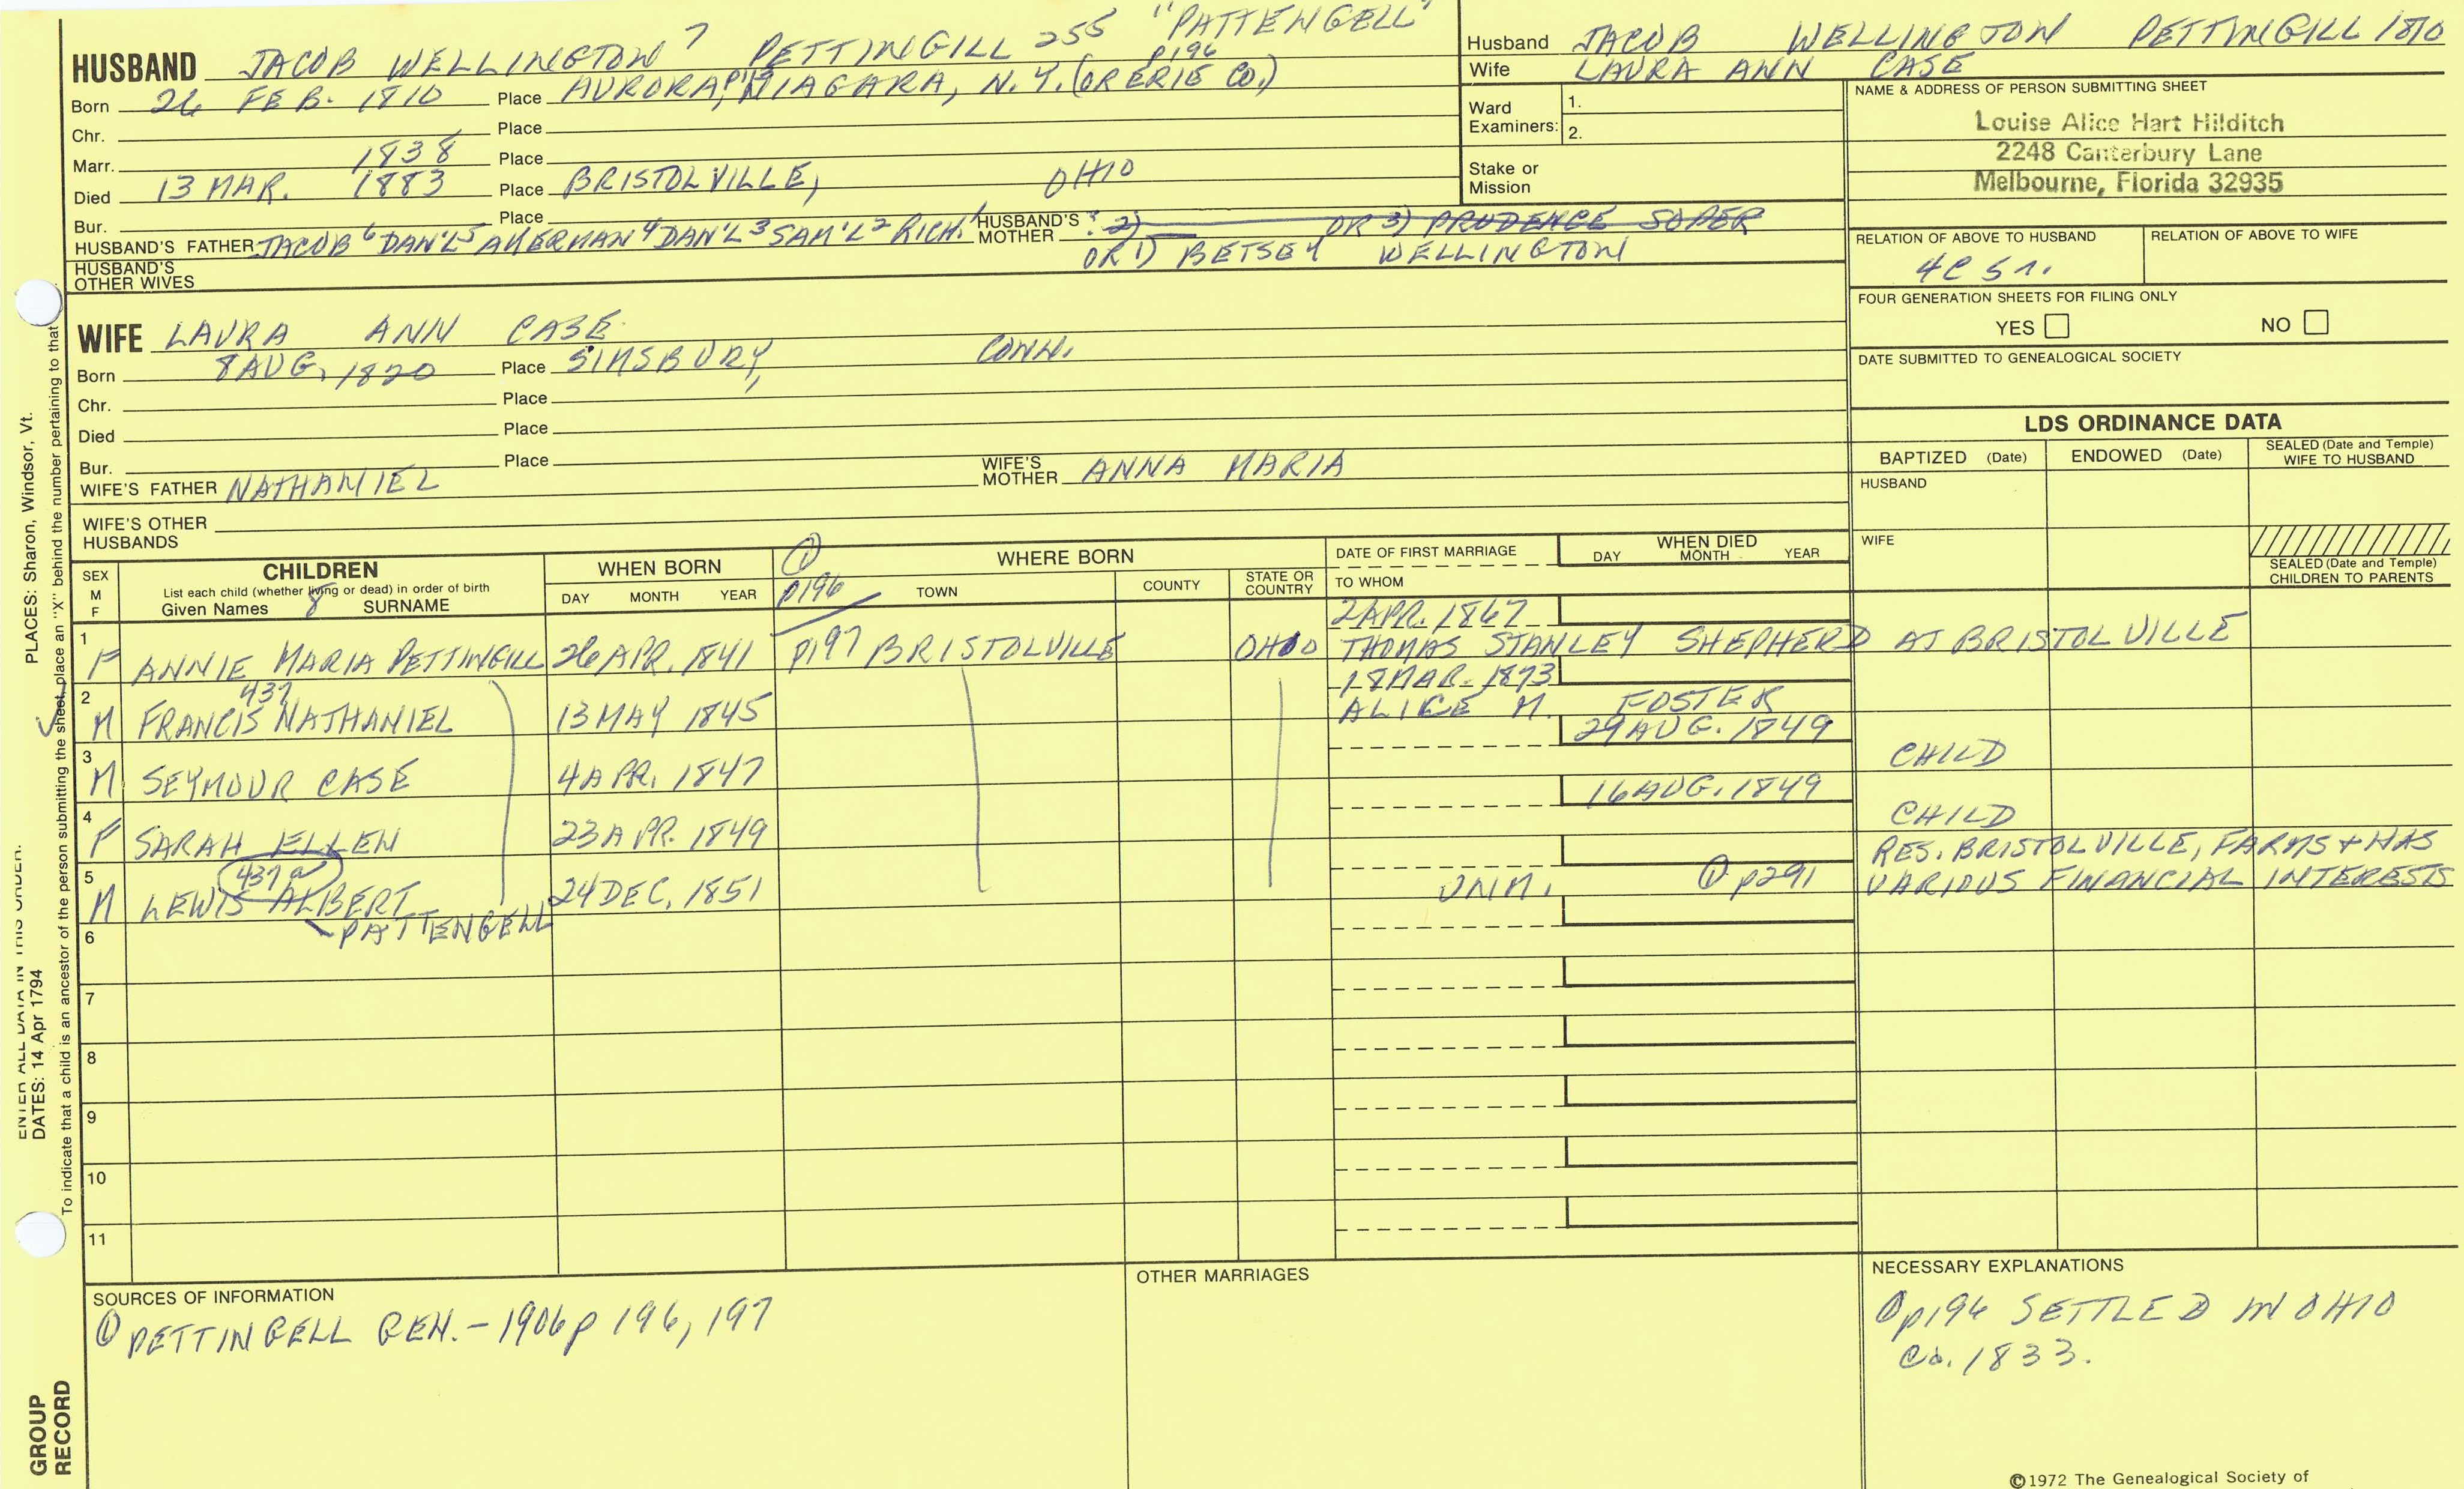 HUSBAND JACOB WELLINGTON 7 PETTINGILL 255 "PATTENGELL"
p196
Born 26 FEB. 1810 Place AURORA, NIAGARA, N.Y. (OR ERIE CO.)
Chr. Place
Marr. 1838 Place
Died 13 MAR. 1883 Place BRISTOLVILLE, OHIO
Bur. Place
HUSBAND'S FATHER JACOB 6 DAN'L 5 AKERMAN 4 DAN'L 3 SAM'L 2 RICH. 1 HUSBAND'S MOTHER ? 2) OR 3) PRUDENCE SOPER
OR 1) BETSEY WELLINGTON
HUSBAND'S OTHER WIVES
Husband JACOB WELLINGTON PETTINGILL 1810
Wife LAURA ANN CASE
Ward Examiners: 1.
2.
Stake or Mission
NAME & ADDRESS OF PERSON SUBMITTING SHEET
Louise Alice Hart Hilditch
2248 Canterbury Lane
Melbourne, Florida 32935
RELATION OF ABOVE TO HUSBAND RELATION OF ABOVE TO WIFE
4C 5r.
FOUR GENERATION SHEETS FOR FILING ONLY
YES NO
DATE SUBMITTED TO GENEALOGICAL SOCIETY
WIFE LAURA ANN CASE
Born 8 AUG. 1820 Place SIMSBURY, CONN.
Chr. Place
Died Place
Bur. Place
WIFE'S FATHER NATHANIEL WIFE'S MOTHER ANNA MARIA
WIFE'S OTHER HUSBANDS
LDS ORDINANCE DATA
BAPTIZED (Date) ENDOWED (Date) SEALED (Date and Temple) WIFE TO HUSBAND
HUSBAND
WIFE
SEALED (Date and Temple) CHILDREN TO PARENTS
SEX M F
CHILDREN
List each child (whether living or dead) in order of birth
Given Names 8 SURNAME
WHEN BORN
DAY MONTH YEAR
① p196
WHERE BORN
TOWN COUNTY STATE OR COUNTRY
DATE OF FIRST MARRIAGE
TO WHOM
WHEN DIED
DAY MONTH YEAR
2 APR. 1867
1 F ANNIE MARIA PETTINGILL 26 APR. 1841 p197 BRISTOLVILLE OHIO THOMAS STANLEY SHEPHERD AT BRISTOLVILLE
437 18 MAR. 1873
2 M FRANCIS NATHANIEL 13 MAY 1845 ALICE M. FOSTER
29 AUG. 1849
3 M SEYMOUR CASE 4 APR. 1847 CHILD
16 AUG. 1849
4 F SARAH ELLEN 23 APR. 1849 CHILD
437a RES. BRISTOLVILLE, FARMS + HAS
5 M LEWIS ALBERT 24 DEC. 1851 UNM. ① p291 VARIOUS FINANCIAL INTERESTS
PATTENGELL
6
7
8
9
10
11
SOURCES OF INFORMATION
① PETTINGELL GEN. - 1906 p 196, 197
OTHER MARRIAGES
NECESSARY EXPLANATIONS
① p196 SETTLED IN OHIO
Ca. 1833.
©1972 The Genealogical Society of
ENTER ALL DATA IN THIS ORDER.
PLACES: Sharon, Windsor, Vt.
DATES: 14 Apr 1794
To indicate that a child is an ancestor of the person submitting the sheet, place an "X" behind the number pertaining to that
GROUP
RECORD